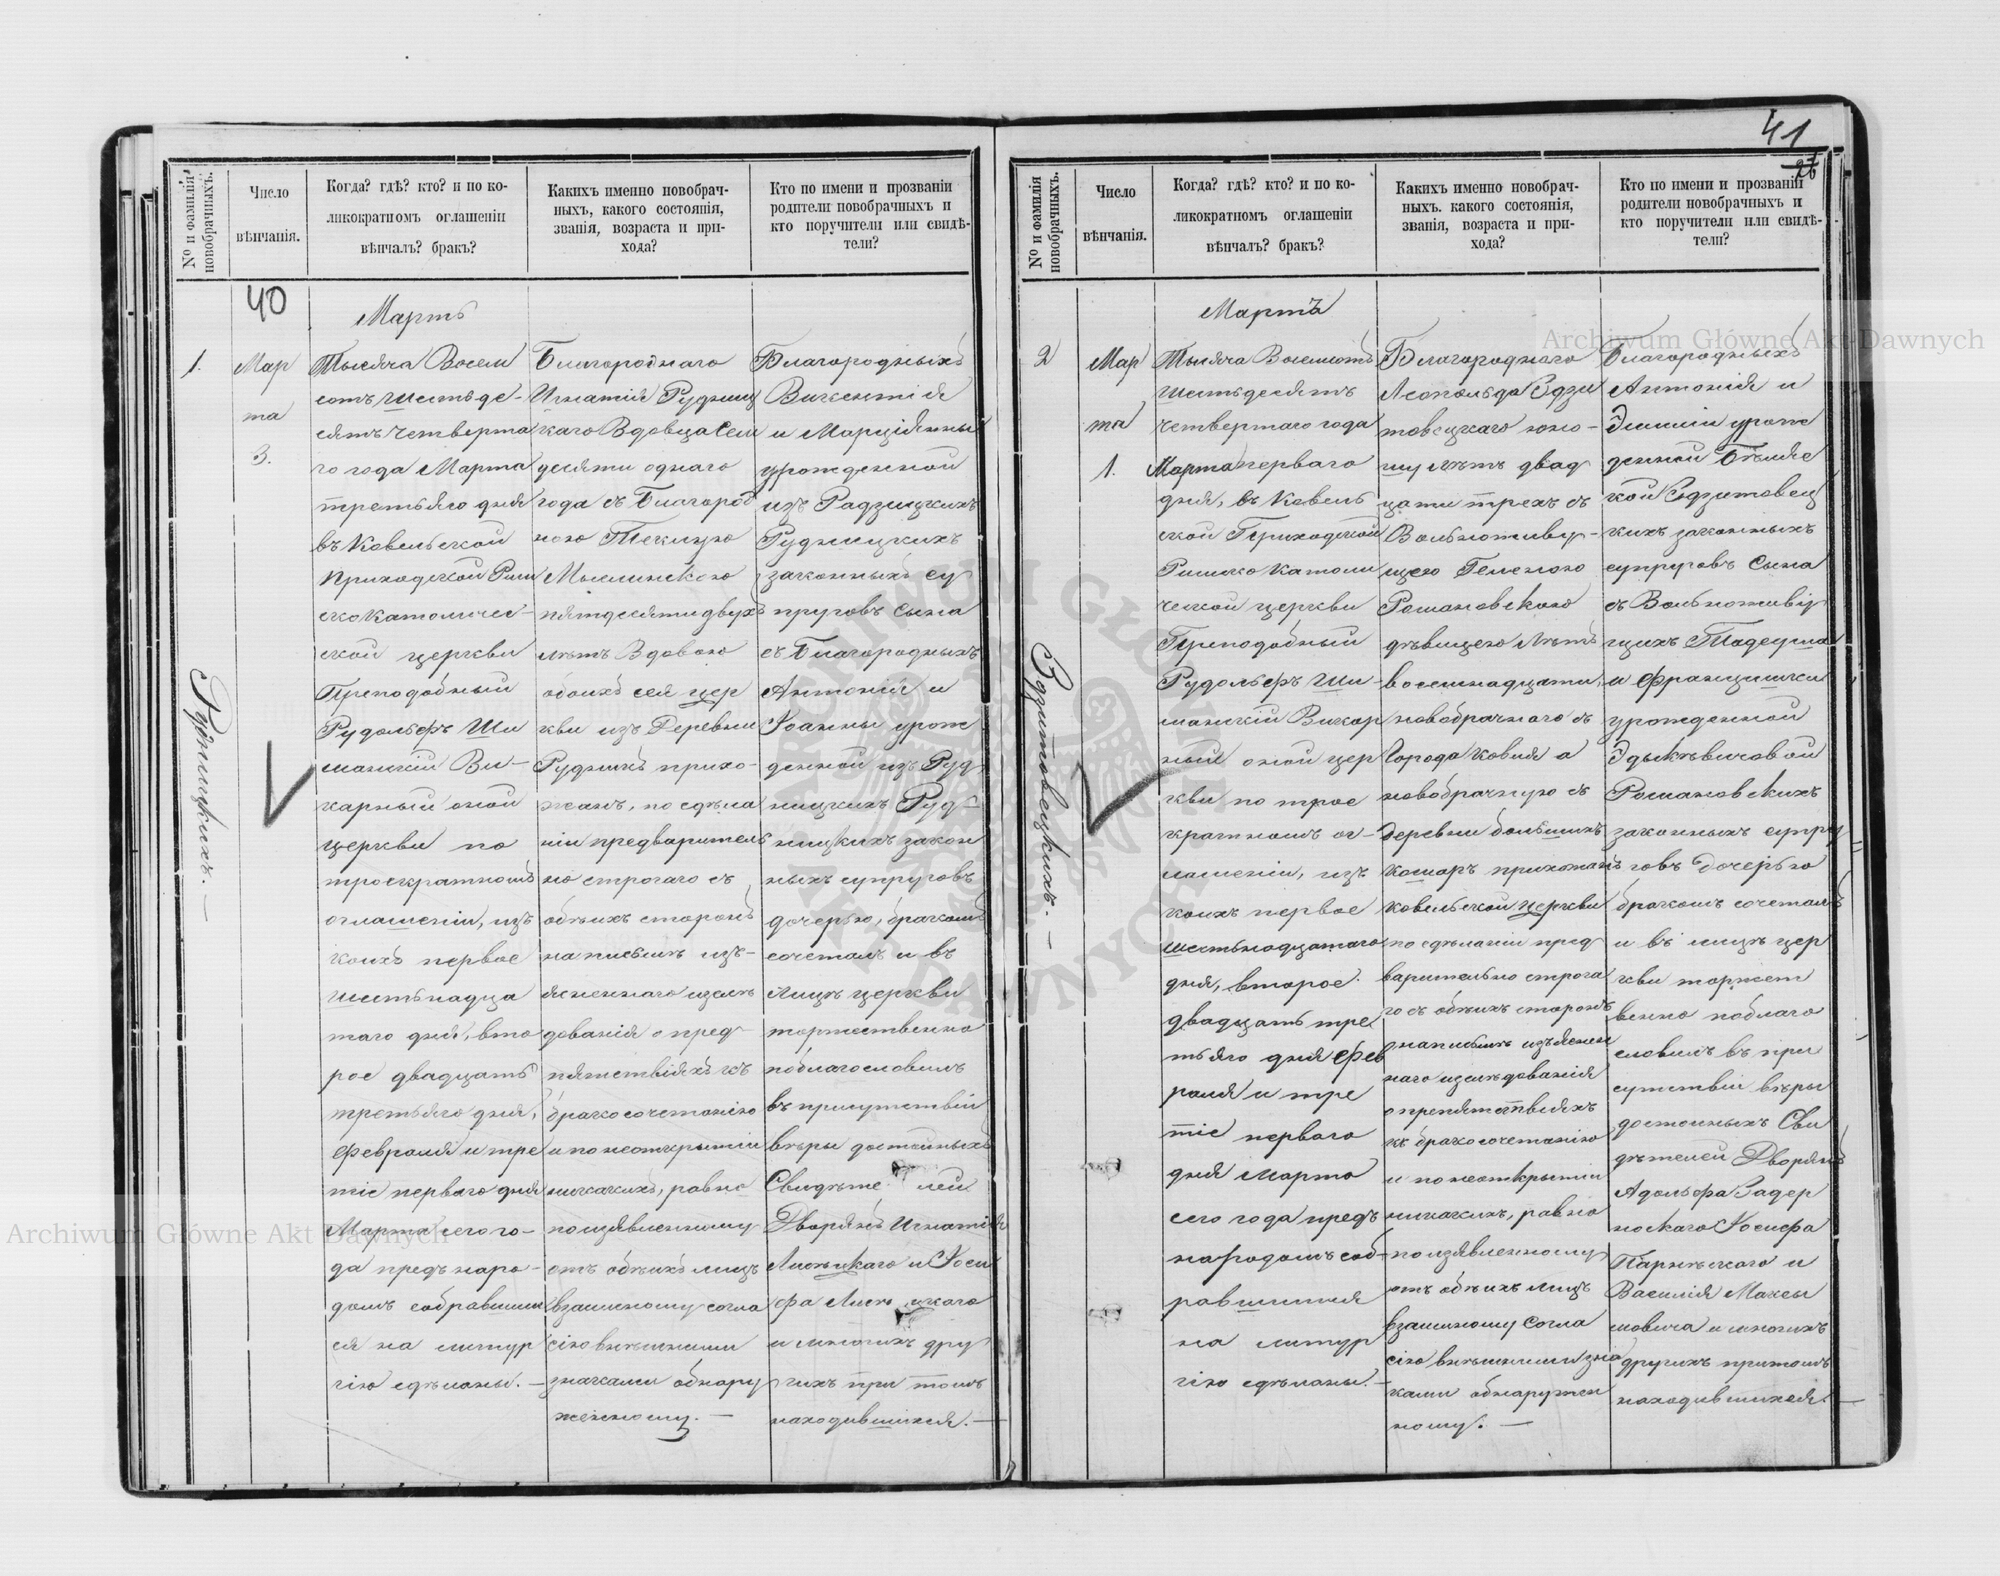 41
26
№ и фамилія новобрачныхъ.
Число
вѣнчанія.
Когда? гдѣ? кто? и по ко-
ликократномъ оглашеніи
вѣнчалъ? бракъ?
Какихъ именно новобрач-
ныхъ, какого состоянія,
званія, возраста и при-
хода?
Кто по имени и прозваніи
родители новобрачныхъ и
кто поручители или свидѣ-
тели?
40
1.
Рудницкихъ. —
Мар
та
3.
Мартъ
Тысяча Восем
сотъ шестьде-
сятъ четверта
го года Марта
третьяго дня
въ Ковельской
приходской Рим
ско Католичес-
ской церкви
Преподобный
Рудольфъ Ши
манскій Ви-
карный оной
церкви по
троекратномъ
оглашеніи, изъ
коихъ первое
шестьнадца
таго дня, вто
рое двадцать
третьяго дня,
февраля и тре
тіе перваго дня
Марта сего го-
да предъ наро-
домъ собравшим
ся на литур
гію сдѣланы. —
Благороднаго
Игнатія Рудниц
каго Вдовца Сем
десяти однаго
года съ Благород
ною Теклею
Мыслинскою
пятдесяти двухъ
лѣтъ Вдовою
обоихъ сея цер
кви изъ Деревни
Рудникъ прихо-
жанъ, по сдѣла
ніи предваритель
но строгаго съ
обѣихъ сторонъ
на письмѣ изъ-
ясненнаго изслѣ
дованія о преп-
пятствіяхъ къ
бракосочетанію
и по неоткрытіи
никакихъ, равно
по изявленному
отъ обѣихъ лицъ
взаимному согла
сію внѣшними
значками обнару
женному. —
Благородныхъ
Викентія
и Марціянны
урожденной
изъ Радзицкихъ
Рудницкихъ
законныхъ су
пруговъ сына
съ Благородныхъ
Антонія и
Іоанны урож
денной изъ Руд
ницкихъ Руд-
ницкихъ закон
ныхъ супруговъ
дочерью, бракомъ
сочеталъ и въ
лицѣ церкви
торжественно
поблагословилъ
въ присутствіи
вѣры достойныхъ
Свидѣте лей
Дворянъ Игнатія
и Іоси
фа
и многихъ дру
гихъ при томъ
находившихся. —
№ и фамилія новобрачныхъ.
Число
вѣнчанія.
Когда? гдѣ? кто? и по ко-
ликократномъ оглашеніи
вѣнчалъ? бракъ?
Какихъ именно новобрач-
ныхъ. какого состоянія,
званія, возраста и при-
хода?
Кто по имени и прозваніи
родители новобрачныхъ и
кто поручители или свидѣ-
тели?
2
Здзитовецкихъ. —
Мар
та
1.
Мартъ
Тысяча Восемсотъ
шестьдесятъ
четвертаго года
Марта перваго
дня, въ Ковель
ской Приходской
Римско Католи
ческой церкви
Преподобный
Рудольфъ Ши-
манскій Викар
ный оной цер
кви по трое
кратномъ ог-
лашеніи, изъ
коихъ первое
шестьнадцатаго
дня, второе
двадцать тре
тьяго дня фев
раля и тре
тіе перваго
дня Марта
сего года предъ
народомъ соб-
равшимся
на литур
гію сдѣланы. —
Благороднаго
Леопольда Здзи
товецкаго юно-
шу лѣтъ двад
цати трехъ съ
Вольноживу-
щею Геленою
Романовскою
дѣвицею лѣтъ
восемнадцати,
новобрачнаго съ
Города Ковля а
новобрачную съ
деревни большихъ
кошаръ прихожанъ
ковельской церкви
по сдѣланіи пред
варительно строга
го съ обѣихъ сторонъ
на письмѣ изъяснен
наго изслѣдованія
о препятствіяхъ
къ бракосочетанію
и по неоткрытіи
никакихъ, равно
по изявленному
отъ обѣихъ лицъ
взаимному согла
сію внѣшними зна
ками обнаружен
ному. —
Благородныхъ
Антонія и
Эмиліи урож
денной Бѣляс
кой Здзитовец
кихъ законныхъ
супруговъ сына
съ Вольноживу
щихъ Тадеуша
и Францишки
урожденной
Романовскихъ
законныхъ супру
говъ дочерью
бракомъ сочеталъ
и въ лицѣ цер
кви торжест
венно поблаго
словилъ въ при
сутствіи вѣры
достойныхъ Сви
дѣтелей Дворянъ
Адольфа Задер
носкаго Іосифа
и
Василія Максы
мовича и многихъ
другихъ притомъ
находившихся. —
Archiwum Główne Akt Dawnych
Archiwum Główne Akt Dawnych
ARCHIWUM GŁÓWNE AKT DAWNYCH